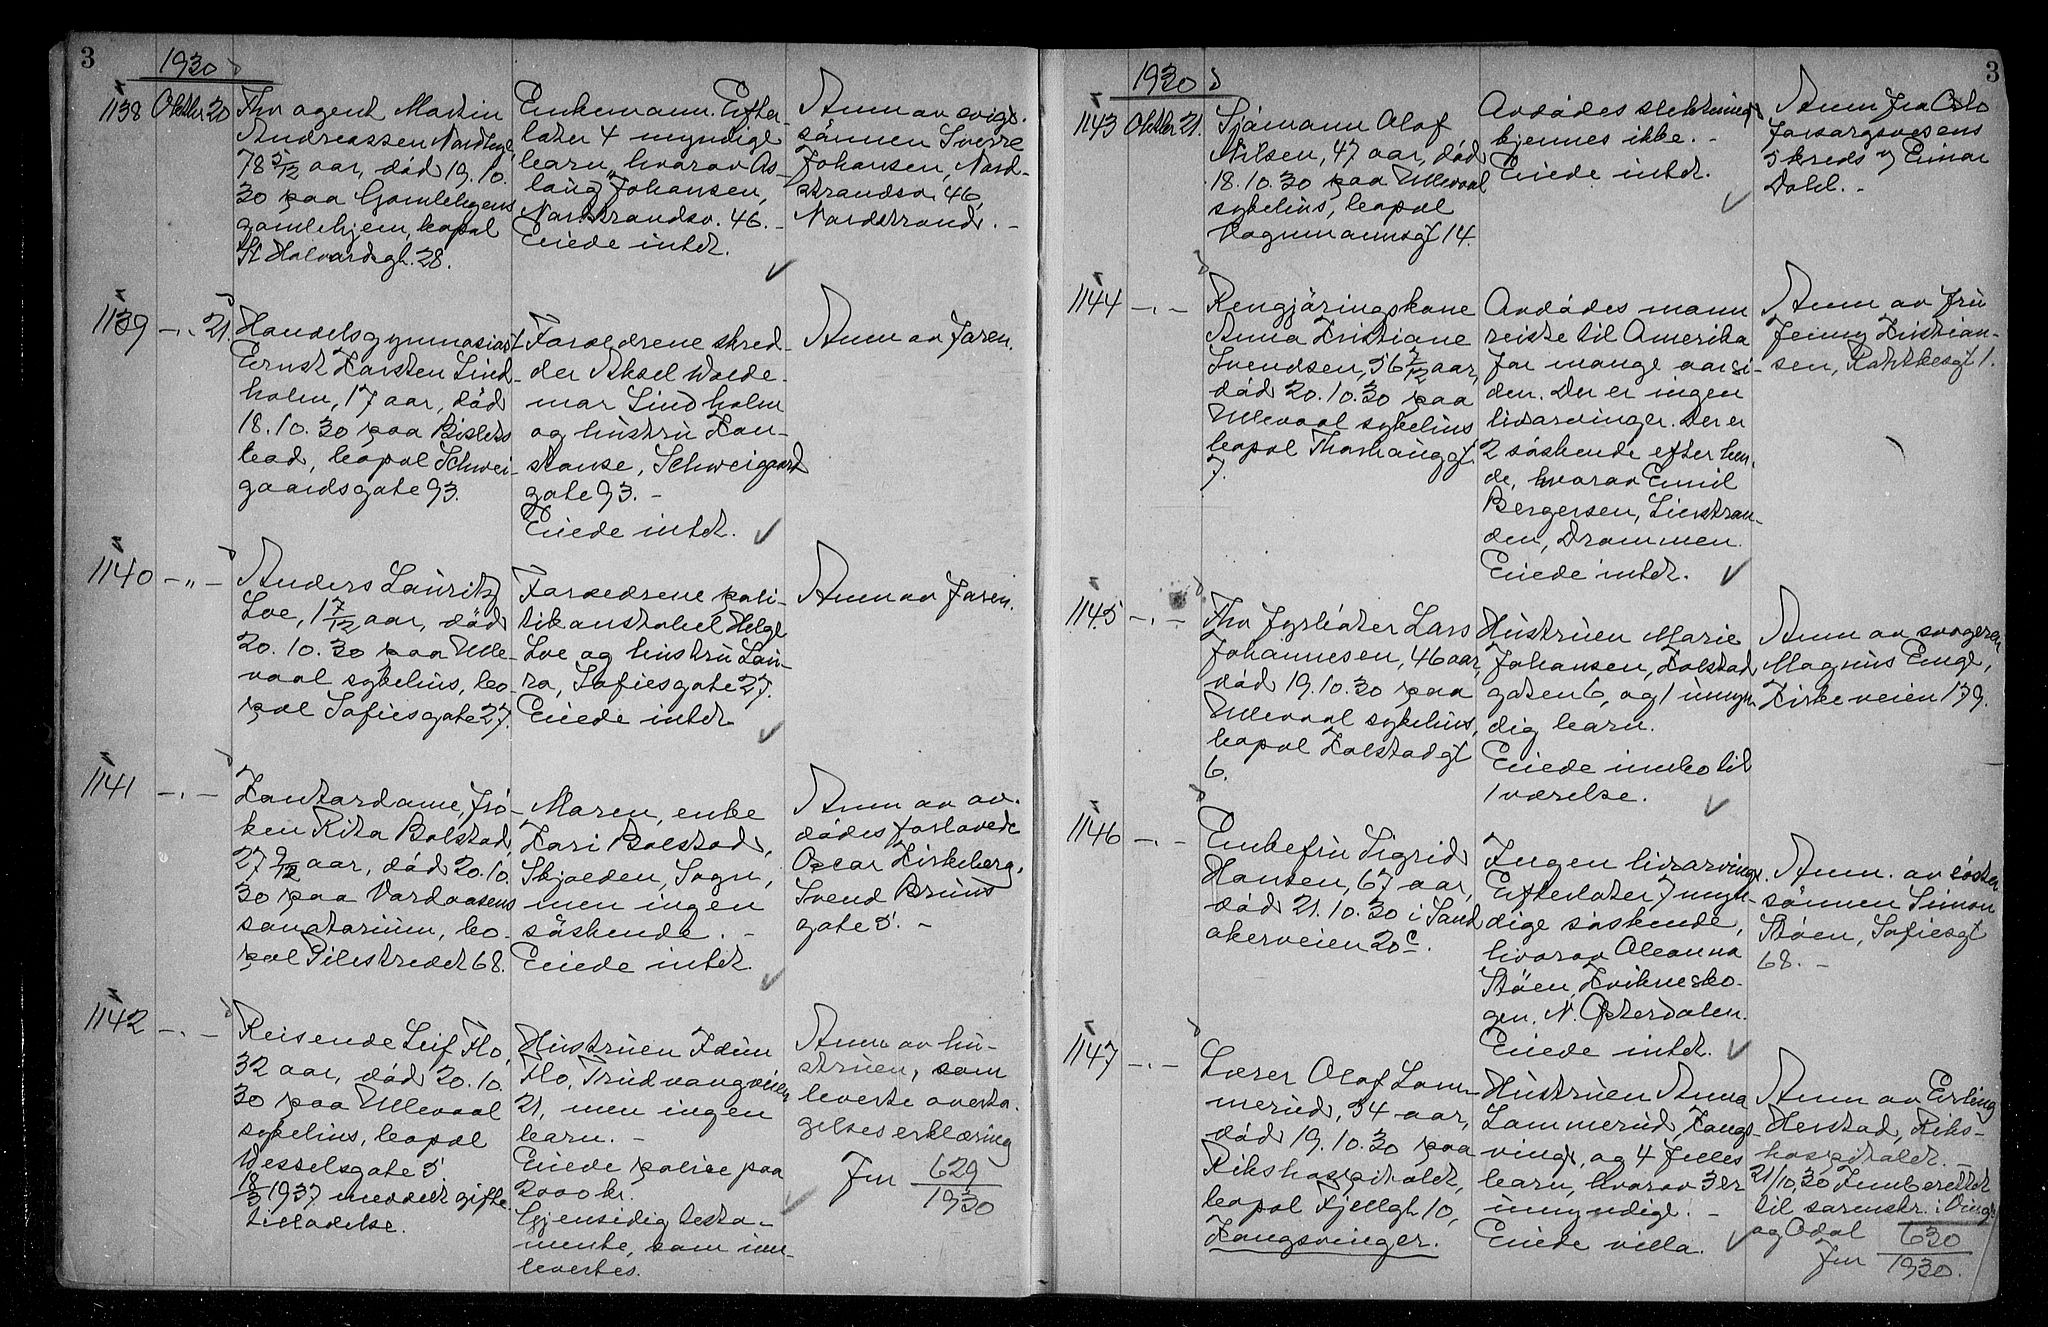 3
1930
1138 Oktbr 20
Fhv agent Martin
Andreassen Nordhagl,
78 5/12 aar, död 19.10.
30 paa Gamlebyens
gamlehjem, bopæl
St Halvardsgt. 28.
Enkemann. Efter-
later 4 myndige
barn, hvorav As-
laug Johansen,
Nordstrandsv. 46. -
Eiede intet.
Anm av svigr.
sönnen Sverre
Johansen, Nord-
strandsv. 46,
Nordstrand. -
1139 -"- 21.
Handelsgymnasiast
Ernst Karsten Lind-
holm, 17 aar, död
18.10.30 paa Bislets
bad, bopæl Schwei-
gaardsgate 93.
Forældrene skred-
der Aksel Wolde-
mar Lindholm
og hustru Kon-
stanse, Schweigaard
gate 93. -
Eiede intet.
Anm av faren.
1140 -"-
Anders Lauritz
Loe, 1 7/12 aar, död
20.10.30 paa Ulle-
vaal sykehus, bo-
pæl Sofiesgate 27.
Forældrene poli-
tikonstabel Helge
Loe og hustru Lau-
ra, Sofiesgate 27.
Eiede intet.
Anm av faren.
1141 -"-
Kontordame, frö-
ken Rita Bolstad,
27 9/12 aar, död 20.10.
30 paa Vardaasens
sanatorium, bo-
pæl Pilestredet 68.
Moren, enke
Kari Bolstad,
Skjolden, Sogn,
men ingen
söskende. -
Eiede intet.
Anm av av-
dödes forlovede
Oscar Kirkeberg,
Svend Bruns
gate 5. -
1142 -"-
Reisende Leif Flo,
32 aar, död 20.10.
30 paa Ullevaal
sykehus, bopæl
Wesselsgate 5
18/3 1937 meddelt gifte-
tilladelse.
Hustruen Idun
Flo, Trudvangveien
21, men ingen
barn. -
Eiede police paa
2000 kr.
Gjensidig testa-
mente, som inn-
levertes.
Anm av hu-
struen, som
leverte overta-
gelseserklæring
Jnr 629
1930
3
1930
1143 Oktbr 21.
Sjömann Olaf
Nilsen, 47 aar, död
18.10.30 paa Ullevaal
sykehus, bopæl
Vognmannsgt 14
Avdödes slektninger
kjennes ikke. -
Eiede intet.
Anm fra Oslo
forsorgsvesens
5 kreds v/ Einar
Dahl. -
1144 -"-
Rengjöringskone
Anna Kristiane
Svendsen, 56 7/12 aar,
död 20.10.30 paa
Ullevaal sykehus
bopæl Thorhauggt
7.
Avdödes mann
reiste til Amerika
for mange aar si-
den. Der er ingen
livsarvinger. Der er
2 söskende efter hen-
de, hvorav Emil
Bergersen, Lierstran-
den, Drammen.
Eiede intet.
Anm av fru
Jenny Kristian-
sen, Rahbkesgt 1.
1145 -"-
Fhv fyrböter Lars
Johannesen, 46 aar,
död 19.10.30 paa
Ullevaal sykehus,
bopæl Kolstadgt
6.
Hustruen Marie
Johansen, Kolstad
gaten 6, og 1 umyn-
dig barn.
Eiede innbo til
1 værelse.
Anm av svogeren
Magnus Enge,
Kirkeveien 179.
1146 -"-
Enkefru Sigrid
Hansen, 67 aar,
död 21.10.30 i Sand
akerveien 20c.
Ingen livsarvinger.
Efterlater 7 myn-
dige söskende,
hvorav Oleanna
Stöen, Kvikнesko-
gen, N. Österdalen.
Eiede intet.
Anm. av söster-
sönnen Simon
Stöen, Sofiesgt
68. -
1147 -"-
Lærer Olaf Lom-
merud, 34 aar,
död 19.10.30 paa
Rikshospitalet,
bopæl Fjellgt 10,
Kongsvinger.
Hustruen Anna
Lommerud, Kongs-
vinger, og 4 felles
barn, hvorav 3 er
umyndige. -
Eiede villa.
Anm av Erling
Herstad, Riks-
hospitalet. -
21/10.30 Innberettet
til sorenskr. i Vinger
og Odal
Jnr 630
1930.